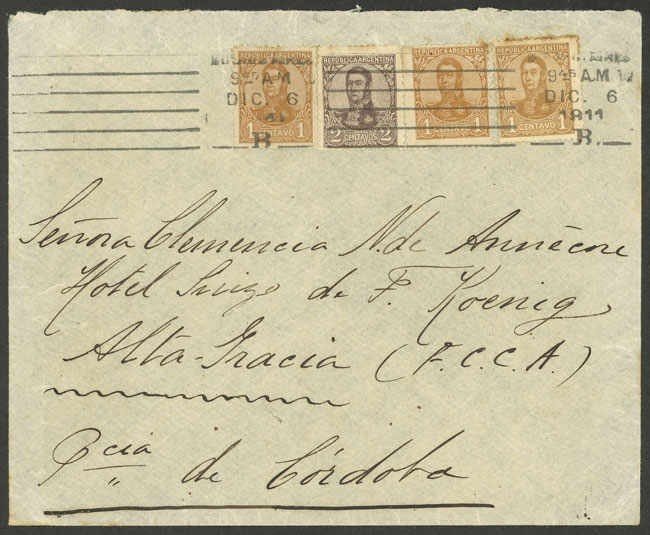 REPUBLICA ARGENTINA REPUBLICA ARGENTINA REPUBLICA ARGENTINA REPUBLICA ARGENTINA
1 CENTAVO 1
2 CENTAVOS 2
1 CENTAVO 1
1 CENTAVO 1
9 45 AM
DIC. 6
B.
9 45 AM
DIC. 6
1911
B.
Señora Clemencia N. de
Hotel Suizo de F. Koenig
Alta-Gracia (F.C.C.A.)
Pcia de Córdoba